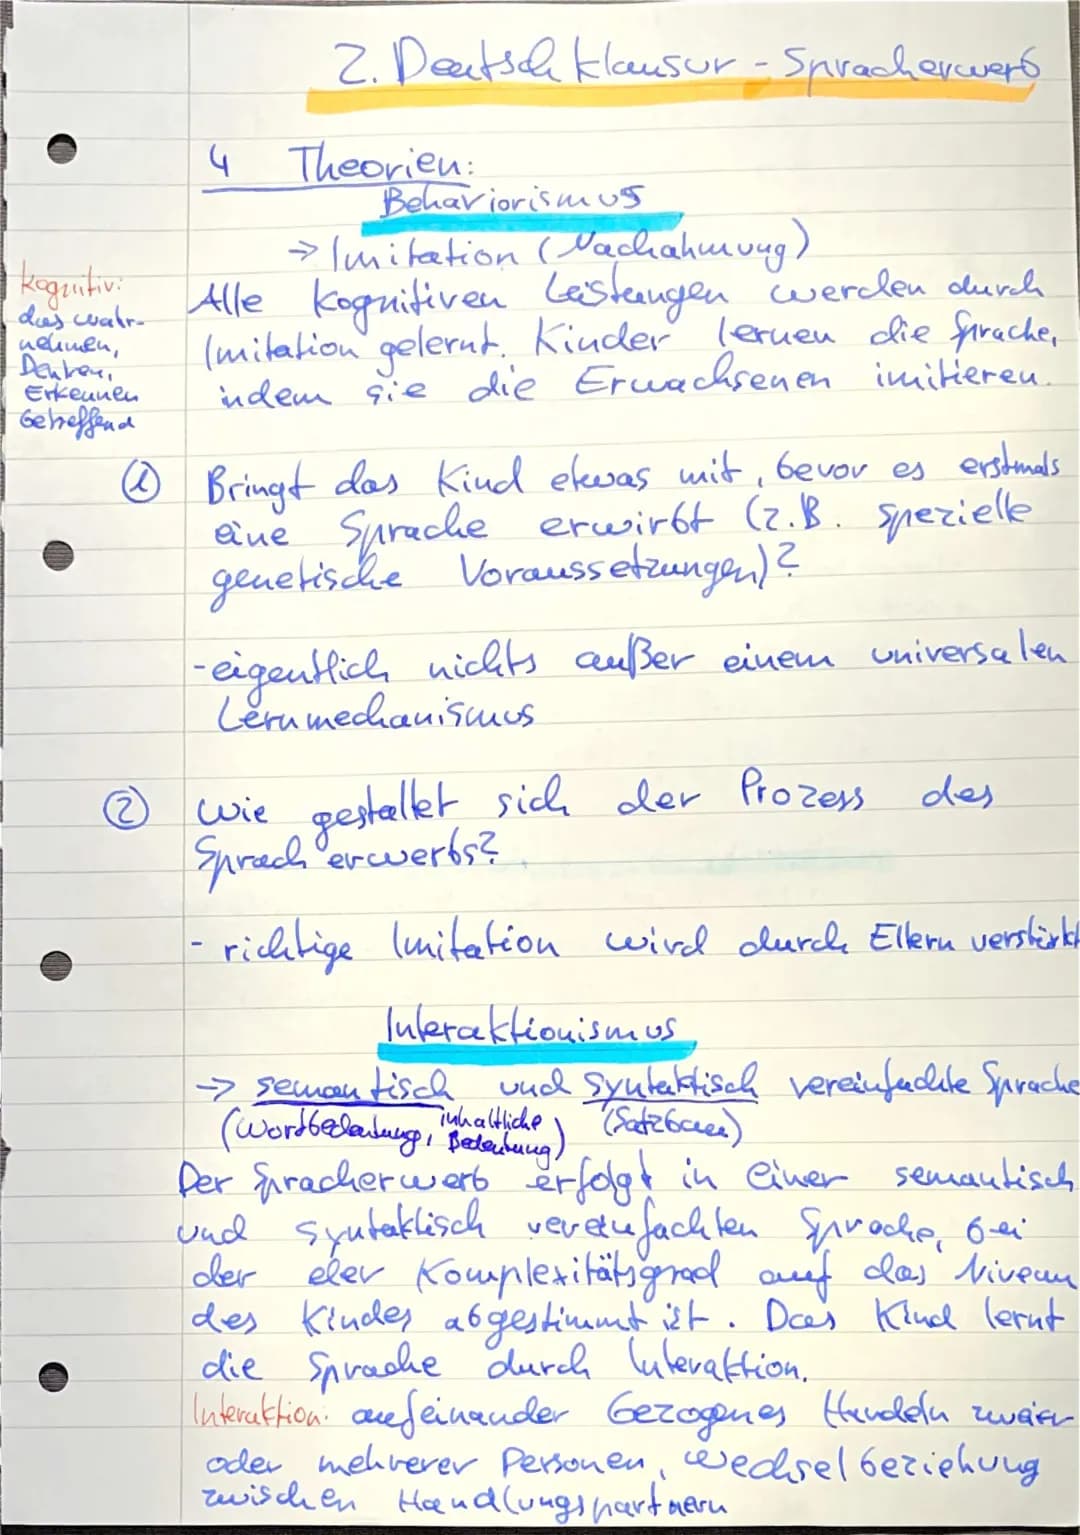 2. Deutschklausur - Spracherwerb
4 Theorien:
Behaviorismus
→ Imitation (Nachahmung)
kognitiv:
das wahr-
nehmen,
Denken,
Erkennen
betreffend
Alle kognitiven Leistungen werden durch
Imitation gelernt. Kinder lernen die Sprache,
indem sie die Erwachsenen imitieren.
① Bringt das Kind etwas mit, bevor es erstmals
eine Sprache erwirbt (z.B. spezielle
genetische Voraussetzungen)?
- eigentlich nichts außer einem universalen
Lernmechanismus
② Wie gestaltet sich der Prozess des
Spracherwerbs?
- richtige Imitation wird durch Eltern verstärkt
Interaktionismus
→ semantisch und syntaktisch vereinfachte Sprache
(Wortbedeutung, inhaltliche Bedeutung) (Satzbau)
Der Spracherwerb erfolgt in einer semantisch
und syntaktisch vereinfachten Sprache, bei
der der Komplexitätsgrad auf das Niveau
des Kindes abgestimmt ist. Das Kind lernt
die Sprache durch Interaktion.
Interaktion: aufeinander bezogenes Handeln zweier
oder mehrerer Personen, Wechselbeziehung
zwischen Handlungspartnern